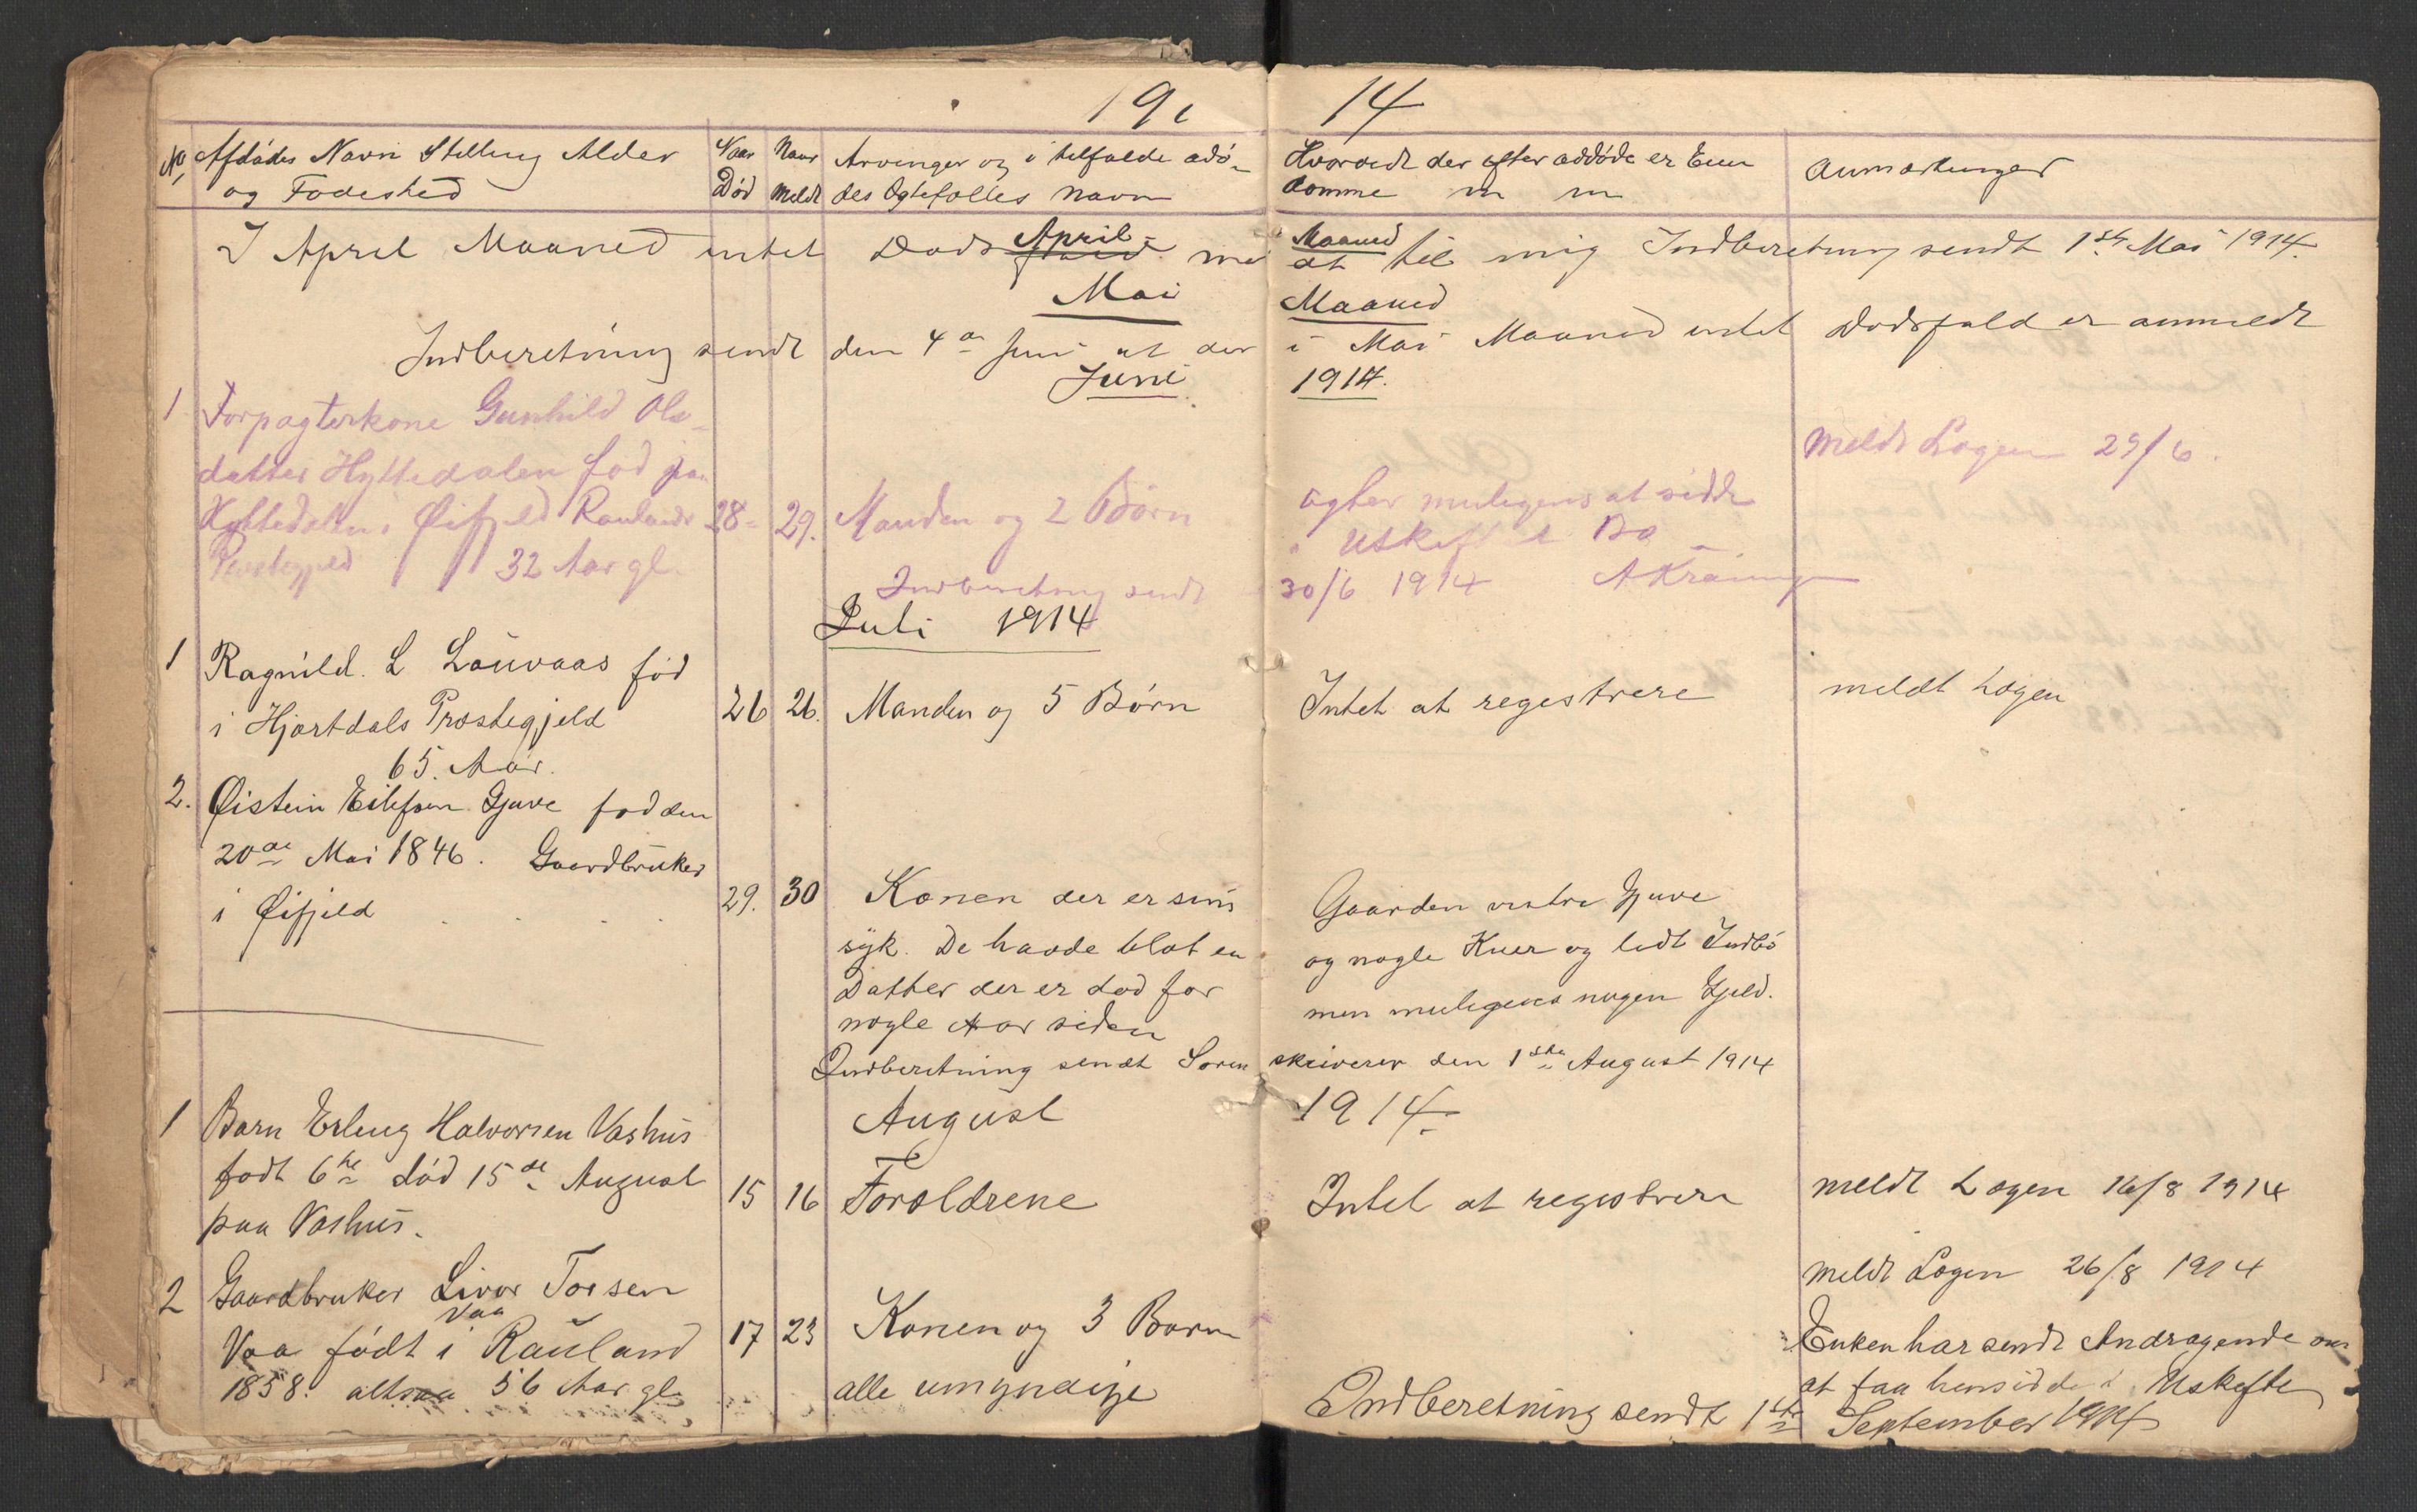 191 14
No Afdødes Navn Stilling Alder og Fødested
Naar Død
Naar Meldt
Arvinger og i tilfælde adø-
des Ægtefælles Navn
Hvorvidt der efter addøde er Eien
domme m m
Anmærkninger
April Maaned
I April Maaned intet Døds me at til mig Indberetning sendt 1ste Mai 1914.
Mai Maaned
Indberetning sendt den 4de Juni at der i Mai Maaned intet Dødsfald er anmeldt
Juni 1914.
1 Forpagterkone Gunhild Ols-
datter Hyttedalen fød paa
Hyttedalen i Øifjeld Raulands 28- 29. Manden og 2 Børn
Prestegjeld 32 Aar gl.
agter muligens at sidde
i Uskift Bo
Meldt Lægen 29/6.
Indberetning sendt 30/6 1914 A Kraaning
Juli 1914
1 Ragnild. L Løuvaas fød
i Hjartdals Præstegjeld 26 26. Manden og 5 Børn Intet at registrere meldt Lægen
65. Aar.
2. Øistein Eilefsen Gjuve fød den
20de Mai 1846. Gaardbruker
i Øifjeld 29. 30
Konen der er sins
syk. De havde blot en
Datter der er død for
nogle Aar siden
Gaarden vestre Gjuve
og nogle Kuer og lidt Indbo
men muligens nogen Gjeld.
Indberetning sendt Soren skriveren den 1ste August 1914
August 1914
1 Barn Erling Halvorsen Vashus
født 6te død 15de August 15 16 Forældrene Intet at registrere meldt Lægen 16/8 1914
paa Vashus.
2 Gaardbruker Livor Torsen
Vaa
Vaa født i Rauland 17 23 Konen og 3 Børn
1858. altsaa 56 Aar gl. alle umyndige
meldt Lægen 26/8 1914
Enken har sendt Andragende om
at faa hensidde i Uskifte
Indberetning sendt 1ste September 1914